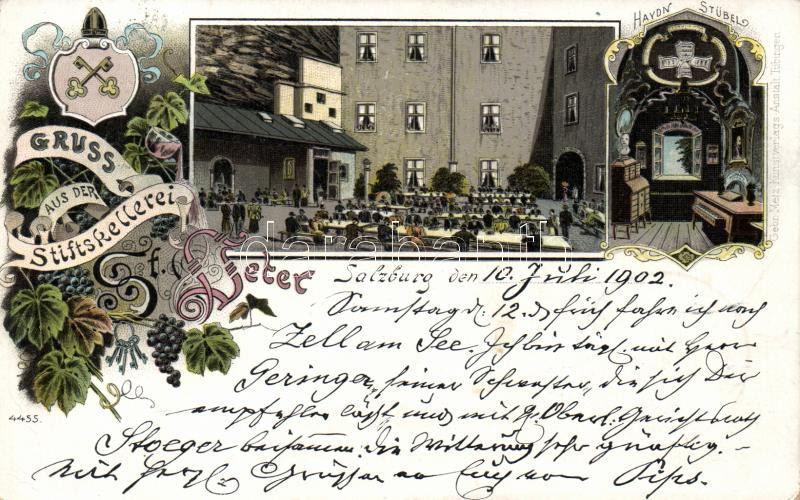 HAYDN STÜBEL
GRUSS
AUS DER
Stiftskellerei
St. Peter
Gebr. Metz Kunstverlags Anstalt Tübingen
darabanth.com
Salzburg den 10. Juli 1902.
Samstag d. 12. d. früh fahre ich nach
Zell am See. Ich bin tägl. mit Herrn
Geringer, seiner Schwester, die sich Dir
empfehlen läßt und mit H. Oberl. Gerichtsrath
Stoeger beisammen. die Witterung sehr günstig.
Mit herzl. Grüssen an Euch von Pips.
4455.